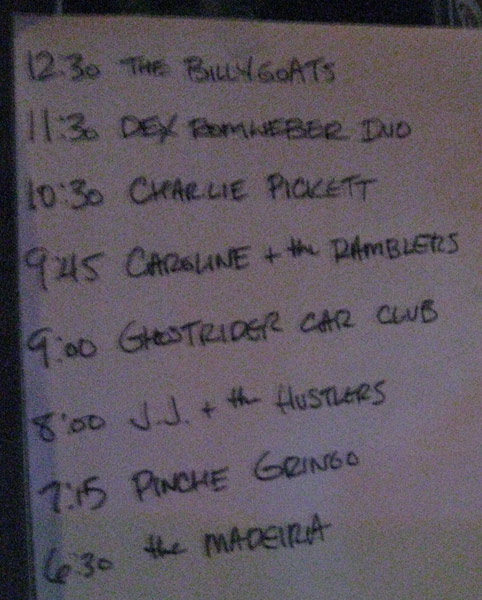 12:30 THE BILLYGOATS
11:30 DEX ROMWEBER DUO
10:30 CHARLIE PICKETT
9:45 CAROLINE + the RAMBLERS
9:00 GHOSTRIDER CAR CLUB
8:00 J.J. + the HUSTLERS
7:15 PINCHE GRINGO
6:30 the MADEIRA